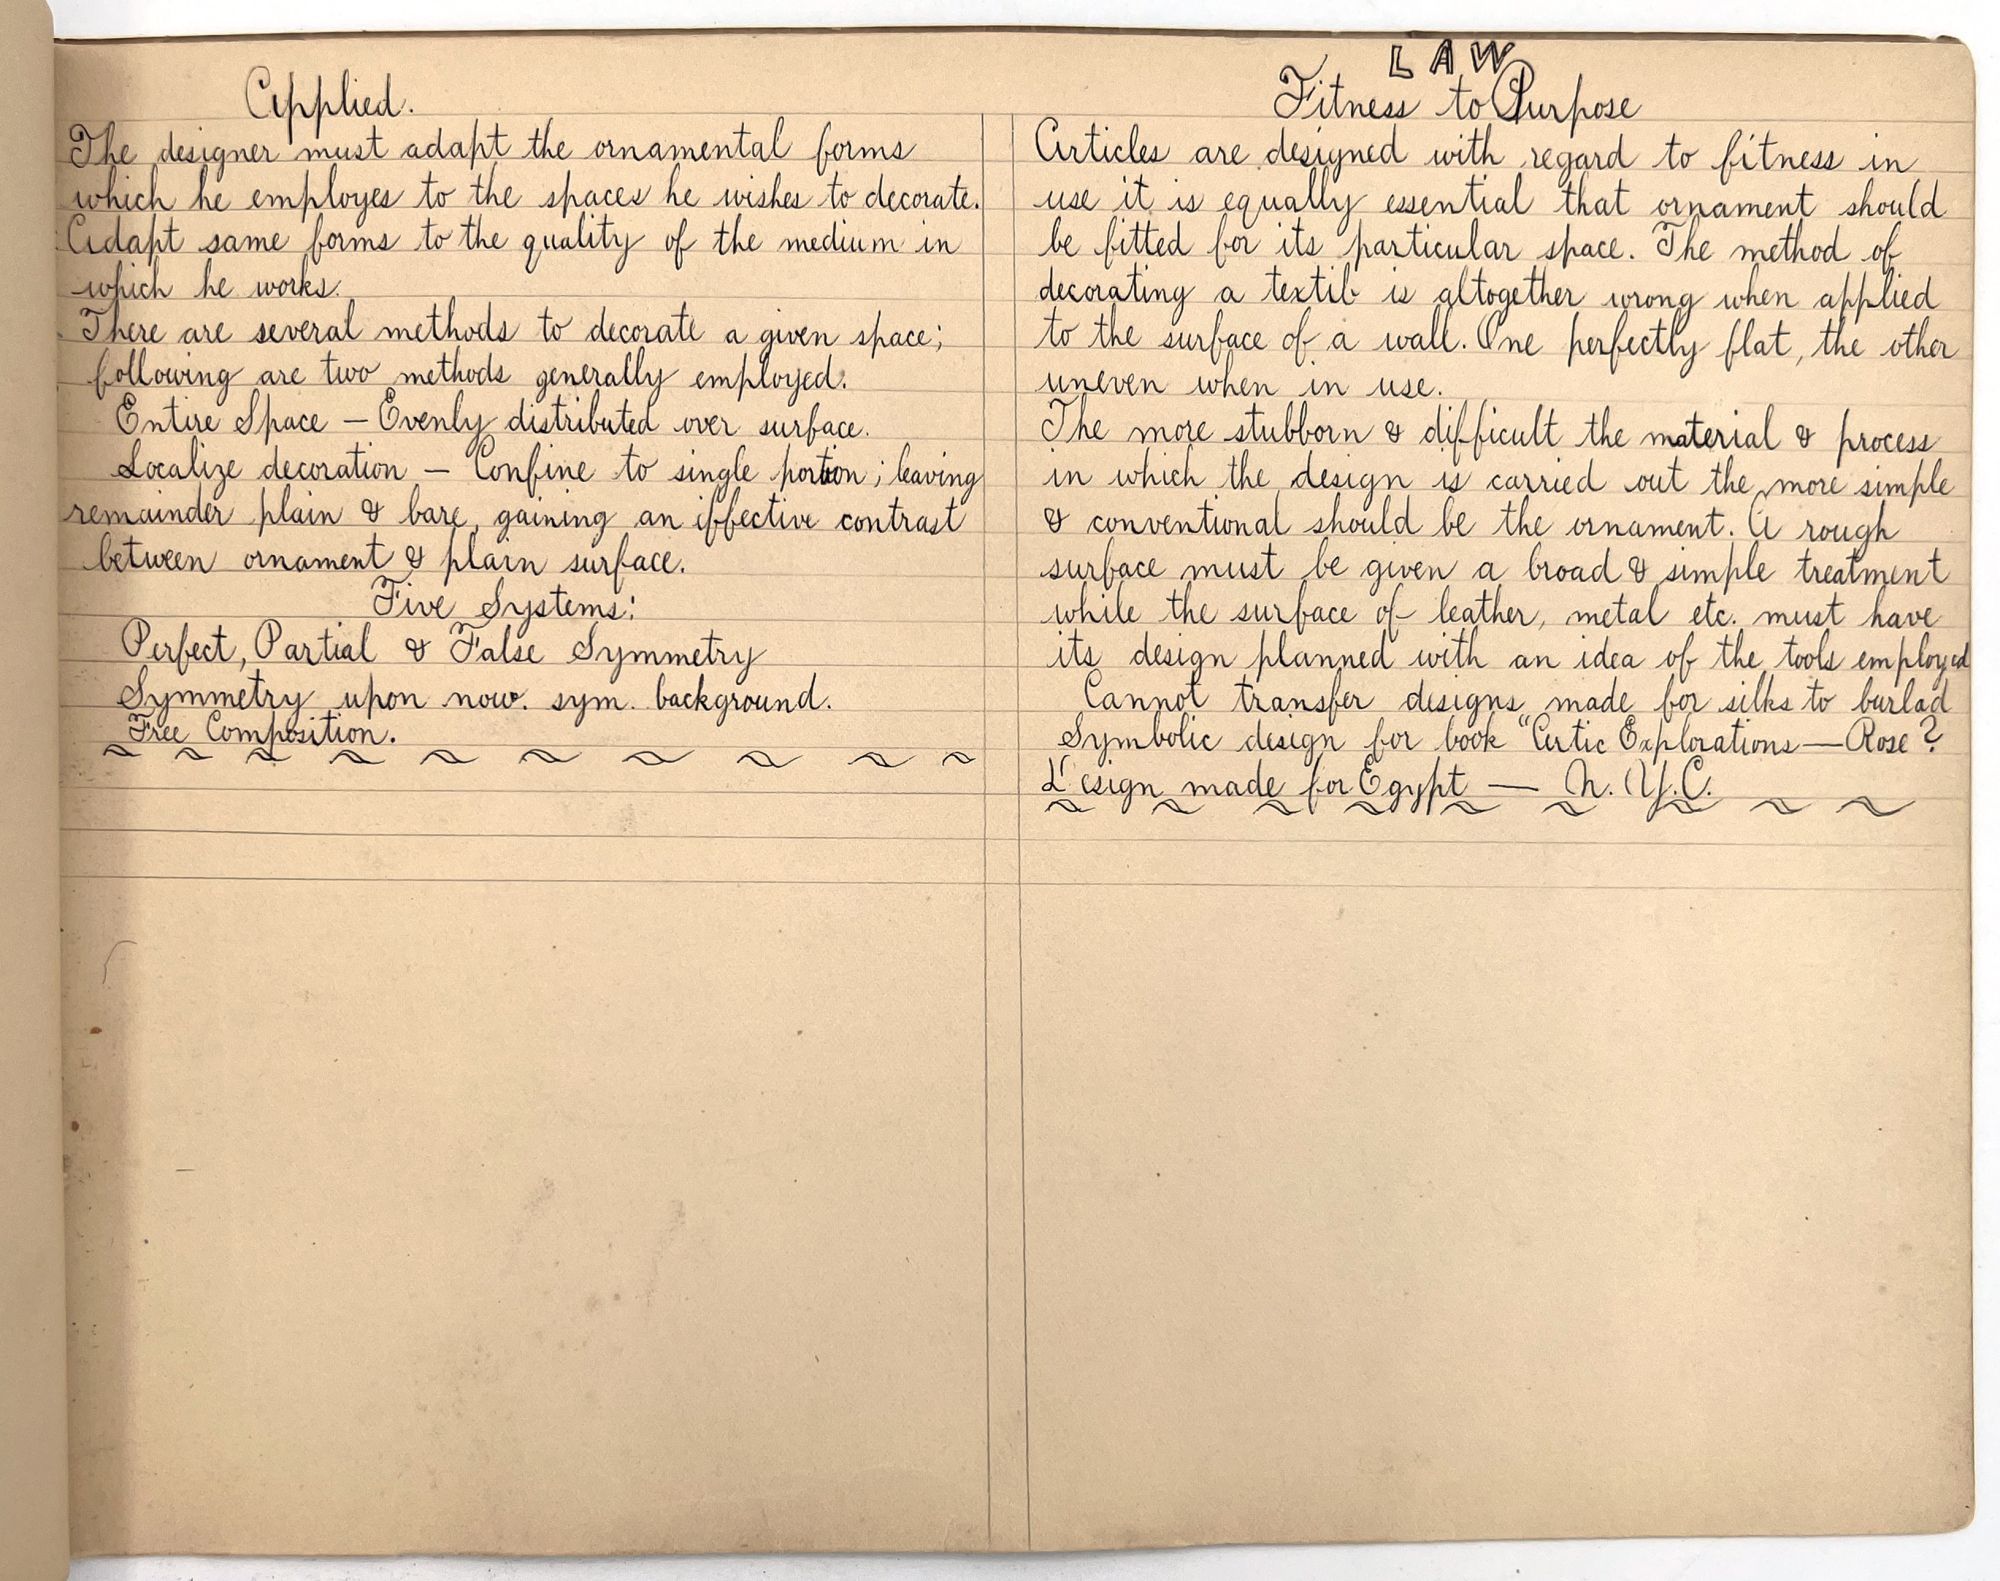 Applied.
The designer must adapt the ornamental forms
which he employes to the spaces he wishes to decorate.
Adapt same forms to the quality of the medium in
which he works.
There are several methods to decorate a given space;
following are two methods generally employed.
Entire Space — Evenly distributed over surface.
Localize decoration — Confine to single portion; leaving
remainder plain & bare, gaining an effective contrast
between ornament & plain surface.
Five Systems:
Perfect, Partial & False Symmetry
Symmetry upon now. sym. background.
Free Composition.
LAW
Fitness to Purpose
Articles are designed with regard to fitness in
use it is equally essential that ornament should
be fitted for its particular space. The method of
decorating a textib is altogether wrong when applied
to the surface of a wall. One perfectly flat, the other
uneven when in use.
The more stubborn & difficult the material & process
in which the design is carried out the more simple
& conventional should be the ornament. A rough
surface must be given a broad & simple treatment
while the surface of leather, metal etc. must have
its design planned with an idea of the tools employed
Cannot transfer designs made for silks to burlad
Symbolic design for book "Artic Explorations — Rose?
Design made for Egypt — N. Y. C.